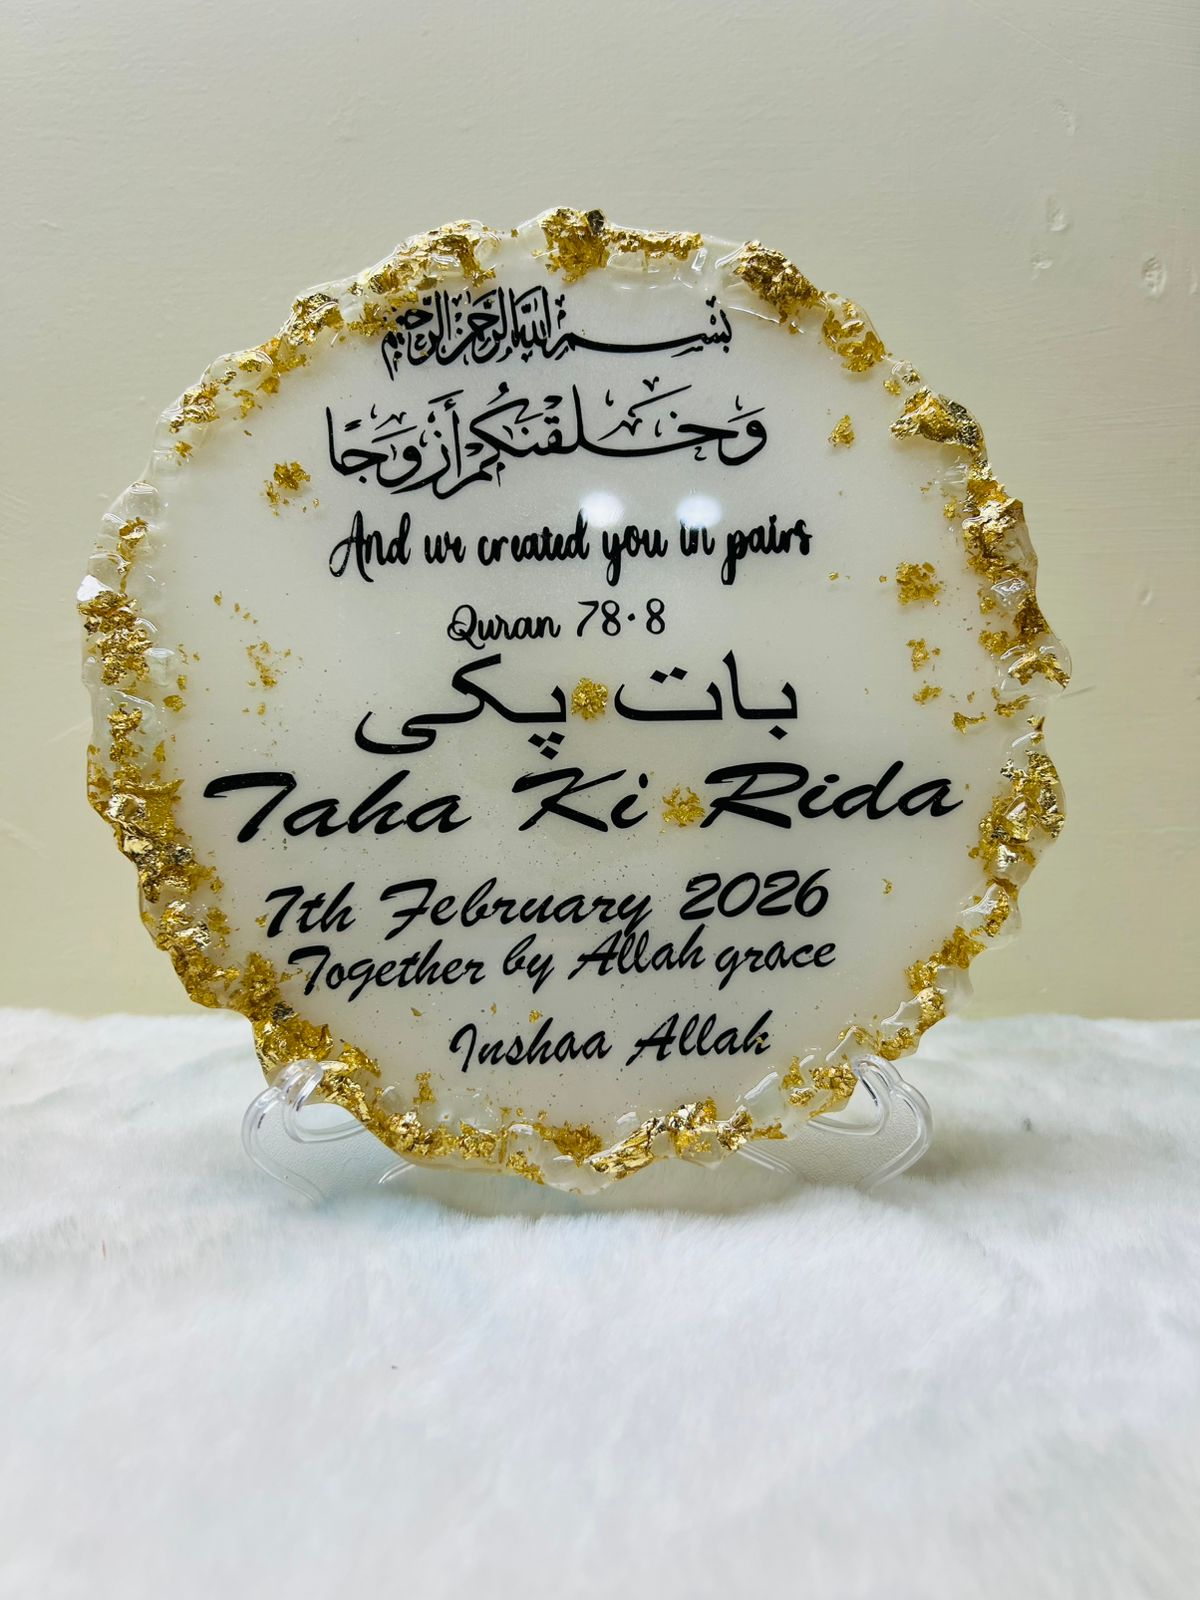 بسم الله الرحمن الرحيم
وَخَلَقْنَكُمْ أَزْوَجًا
And we created you in pairs
Quran 78.8
بات پکی
Taha Ki Rida
7th February 2026
Together by Allah grace
Inshaa Allah